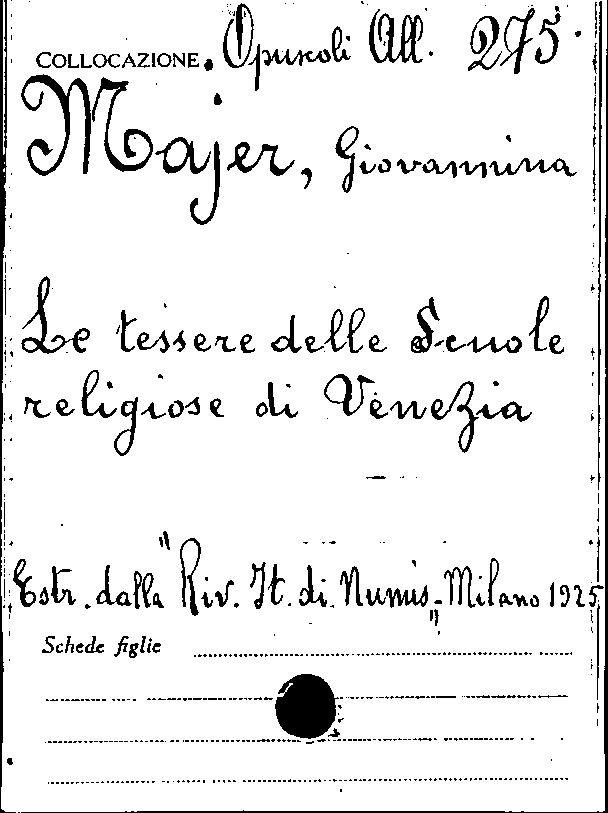 COLLOCAZIONE. Opuscoli All. 275.
Majer, Giovannina
Le tessere delle Scuole
religiose di Venezia
Estr. dalla "Riv. It. di Numis." Milano 1925
Schede figlie